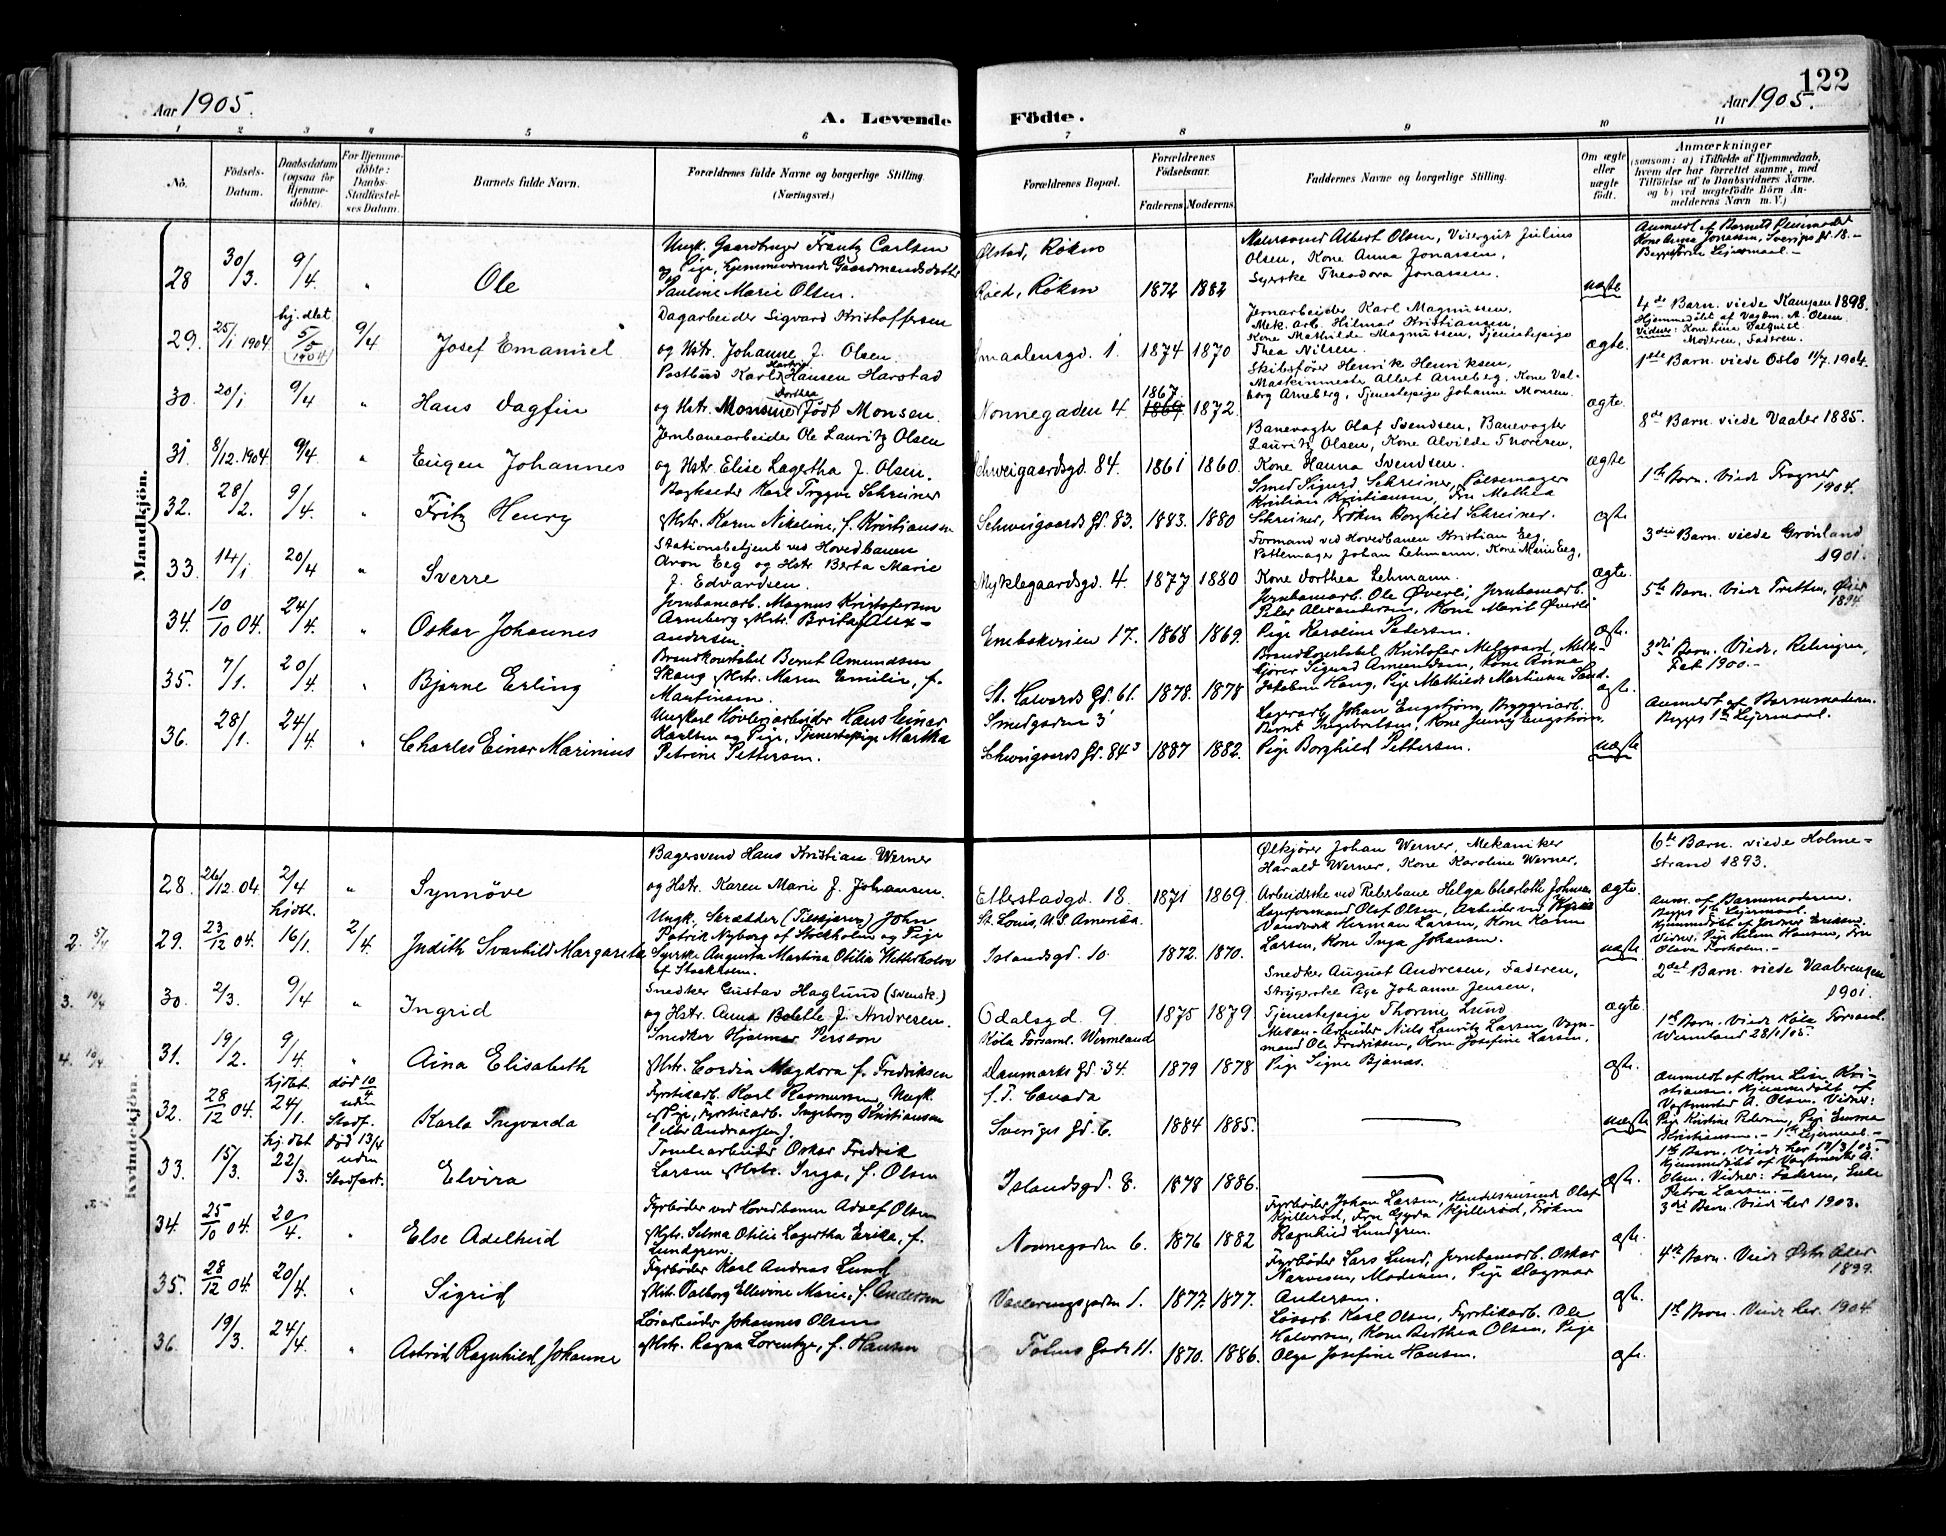 122
Aar 1905.
A. Levende Födte.
Aar 1905.
1 2 3 4 5 6 7 8 9 10 11
No.
Födsels-Datum.
Daabsdatum (ogsaa for Hjemme-döbte).
For Hjemme-döbte: Daabs-Stadfæstel-ses Datum.
Barnets fulde Navn.
Forældrenes fulde Navne og borgerlige Stilling (Næringsvei.)
Forældrenes Bopæl.
Forældrenes Födselsaar. Faderens. Moderens.
Faddernes Navne og borgerlige Stilling.
Om ægte eller uægte födt.
Anmærkninger (saasom: a) i Tilfælde af Hjemmedaab, hvem der har forrettet samme, med Tilföielse af to Daabsvidners Navne, og b) ved uægtefödte Börn An-melderens Navn m. V.)
Mandkjön.
28 30/3. 9/4. " Ole
Ungk. Gaardbruger Frantz Carlsen
og Pige, hjemmeværende Gaardmandsdatter
Pauline Marie Olsen.
Ølstad, Røken
Røed, Røken 1872 1882
Albert Olsen, Visergut Julius
Olsen, Kone Anna Jonassen,
Syerske Theodora Jonassen.
uægte
Anmeldt af Barnets
Kone Anna Jonassen, Sverigs gd. 18.-
Begges første Leiermaal.-
29. 25/1 1904. hj. døbt 5/5 (1904) 9/4 Josef Emanuel
Dagarbeider Sigvard Kristoffersen
og Hstr. Johanne f. Olsen.
Smaalensgd. 1. 1874 1870
Jernarbeider Karl Magnussen,
Mek. Arb. Hilmar Kristiansen,
Kone Mathilde Magnussen, Tjenestepige
Thea Nilsen.
ægte.
4de Barn. viede Kampen 1898.
Hjemmedöbt af Vagtm. A. Olsen.
Vidner: Kone Lina Falquist.
Moderen, Faderen.
30. 20/1 9/4 " Hans Dagfin
Postbud Karl Hartvig Hansen Harstad
og Hstr. Monsine Dorthea født Monsen.
Nonnegaden 4. 1867 1869 1872.
Skibsfører Henrik Henriksen,
Maskinmester Albert Arneberg, Kone Val-
borg Arneberg, Tjenestepige Johanne Monsen.
ægte.
1ste Barn viede Oslo 11/7. 1904.
31. 8/12.1904. 9/4. " Eugen Johannes
Jernbanearbeider Ole Lauritz Olsen
og Hstr. Elise Lagertha f. Olsen.
Schweigaardsgd. 84. 1861 1860.
Banevogter Olaf Svendsen, Banevogter
Lauritz Olsen, Kone Alvilde Thoresen,
Kone Hanna Svendsen.
ægte
8de Barn. viede Vaaler 1885.
32. 28/2. 9/4. " Fritz Henry
Bagkseder Karl Trygve Schreiner
& Hstr. Karen Nikoline, f. Kristiansen
Schweigaards Gd. 83. 1883. 1880
Smed Sigurd Schreiner, Pølsemager
Kristian Kristiansen, Fru Mathea
Schreiner, Frøken Borghild Schreiner.
ægte
1te Barn. viede Frogner
1904.
33. 14/1 20/4 " Sverre
Stationsbetjent ved Hovedbanen
Aron Eeg og Hstr Berta Marie
f. Edvardsen.
Myklegaardsgd. 4. 1877 1880
Formand ved Hovedbanen Kristian Eeg,
Pottemager Johan Lehmann, Kone Marie Eeg,
Kone Dorthea Lehmann.
ægte.
3die Barn viede Grönland
1901.
34. 10/10 04. 24/4. " Oskar Johannes
Jernbanearb. Magnus Kristofersen
Arneberg & Hstr. Brita f. Alex-
andersen.
Enebakveien 17. 1868 1869.
Jernbanearb. Ole Øverli, Jernbanearb.
Peter Alexandersen, Kone Marit Øverli
Pige Karoline Pedersen.
ægte.
5te Barn Viede Tretten, Øier
1894
35. 7/1. 20/4. " Bjarne Erling
Brandkonstabel Bernt Amundsen
Skaug & Hstr. Maren Emilie, f.
Martinsen.
St. Halvards Gd. 61. 1878. 1878
Brandkonstabel Kristofer Melgaard, Mælke-
kjører Sigurd Amundsen, Kone Anna
Jakobine Haug, Pige Mathilde Martinsen Sand.
ægte.
3die Barn. Viede, Relingen,
Fet 1900.-
36. 28/1. 24/4. " Charles Einar Marinius
Ungkarl Høvleriarbeider Hans Einar
Karlsen og Pige, Tjenestepige Martha
Petrine Pettersen.
Smedgaden 3
Schweigaards Gd. 84 1887 1882.
Lagerarb. Johan Engstrøm, Bryggeriarb.
Bernt Ingebretsen, Kone Jenny Engstrøm,
Pige Borghild Pettersen.
uægte
Anmeldt af Barnemoderen.
Begges 1te Leiermaal.
Kvindekjön.
28. 26/12 04 2/4 " Synnöve
Bagersvend Hans Kristian Werner
og Hstr. Karen Marie f. Johansen.
Etterstadgd. 18. 1871 1869.
Ølkjører Johan Werner, Mekaniker
Harald Werner, Kone Karoline Werner,
Arbeiderske ved Reberbane Helga Charlotte Johnsen
ægte.
6te Barn. viede Holme-
strand 1893.
2. 5/4
29. 23/12 04. hjdbt. 16/1. 2/4. Judith Svanhild Margareta
Ungk. Skrædder (Tilskjærer) John
Patrik Nyborg af Stockholm og Pige
Syerske Augusta Martina Otilia Wetterholm
af Stockholm.
St. Louis, U. S. Amerika.
Islandsgd. 10. 1872. 1870.
Lagformand Olaf Olsen, Arbeider ved
Vandverk Herman Larsen, Kone Karen
Larsen, Kone Inga Johansen.
uægte
Anm. af Barnemoderen.
Begges 1te Leiermaal.
Hjemmedöbt af Jordmor Eriksen.
Vidner: Pige Helene Hansen, Fru
Olava Torholm.-
3. 10/4
30. 2/3. 9/4 " Ingrid
Snedker Gustav Haglund (svensk.)
og Hstr. Anna Bolette f. Andresen.
Odalsgd. 9. 1875 1879
Snedker August Andresen, Faderen,
Strygerske Pige Johanne Jensen,
Tjenestepige Thorine Lund
ægte
2det Barn. viede Vaalerengen
1901.
4. 10/4
31. 19/2. 9/4. " Aina Elisabeth
Snedker Hjalmar Persson
& Hstr. Cordia Magdora f. Fredriksen
Köla Forsaml. Wermland
Danmarks gd. 34. 1879 1878
Mekan-Arbeider Niels Lauritz Larsen, Vogn-
mand Ole Fredriksen, Kone Josefine Larsen,
Pige Signe Bjanæs.
ægte.
1te Barn. Viede Köla Forsaml.
Wermland 28/1/05.
32. 28/12 04. hjdbt. 24/1. død 10/4 uden Stadf. Karla Ingvarda
Fyrstikarb. Karl Rasmussen, Ungk.
& Pige, Fyrstikarb. Ingeborg Kristiansen
(eller Andreassen).
f. T. Canada
Sveriges gd. 6. 1884 1885.
uægte
Anmeldt af Kone Lise Kri-
stiansen. Hjemmedöbt af
Vagtmester A. Olsen. Vidner:
Pige Kristine Pedersen, Pige Emma
Kristiansen. - 1te Leiermaal.-
33. 15/3. hj.dbt 22/3. död 13/4 uden Stadfæst. Elvira
Tomtearbeider Oskar Fredrik
Larsen & Hstr. Inga, f. Olsen
Islandsgd. 8. 1878 1886.
ægte.
1te Barn. Viede her 12/3/05.-
Hjemmedöbt af Vagtmester A.
Olsen. Vidner: Faderen,
Petra Larsen.-
34. 25/10 04. 20/4. Else Adelheid
Fyrbøder ved Hovedbanen Adolf Olsen
& Hstr. Selma Otilie Lagertha Erika, f.
Lundgren.
Nonnegaden 6. 1876 1882
Fyrbøder Johan Larsen, Handelsreisende Olaf
Kjillerød, Fru Gyda Kjillerød, Frøken
Ragnhild Lundgren.
ægte.
3die Barn. Viede her 1903.
35. 28/12 04. 20/4. " Sigrid
Fyrbøder Karl Andreas Lund
& Hstr. Valborg Ellevine Marie, f. Andersen
Vaalerengsgaden 1. 1877. 1877.
Fyrbøder Lars Lund, Jernbanearb. Oskar
Narvesen, Moderen, Pige Dagmar
Andersen.
ægte.
4de Barn. Viede Østre
1899.
36. 19/3. 24/4. " Astrid Ragnhild Johanne
Løsarbeider Johannes Olsen
& Hstr. Ragna Lorentze, f. Hansen
Tolvus Gade 11. 1870. 1886.
Løsarb. Karl Olsen, Fyrstikarb. Ole
Halvorsen, Kone Berthea Olsen, Pige
Olga Josefine Hansen.
ægte.
1te Barn. Viede her. 1904